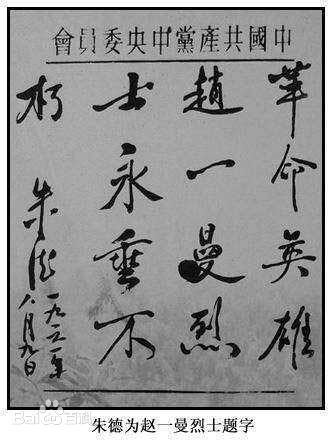 中國共產黨中央委員會
革命英雄
趙一曼烈
士永垂不
朽
朱德
一九六一年
八月九日
Bai百科
朱德为赵一曼烈士题字